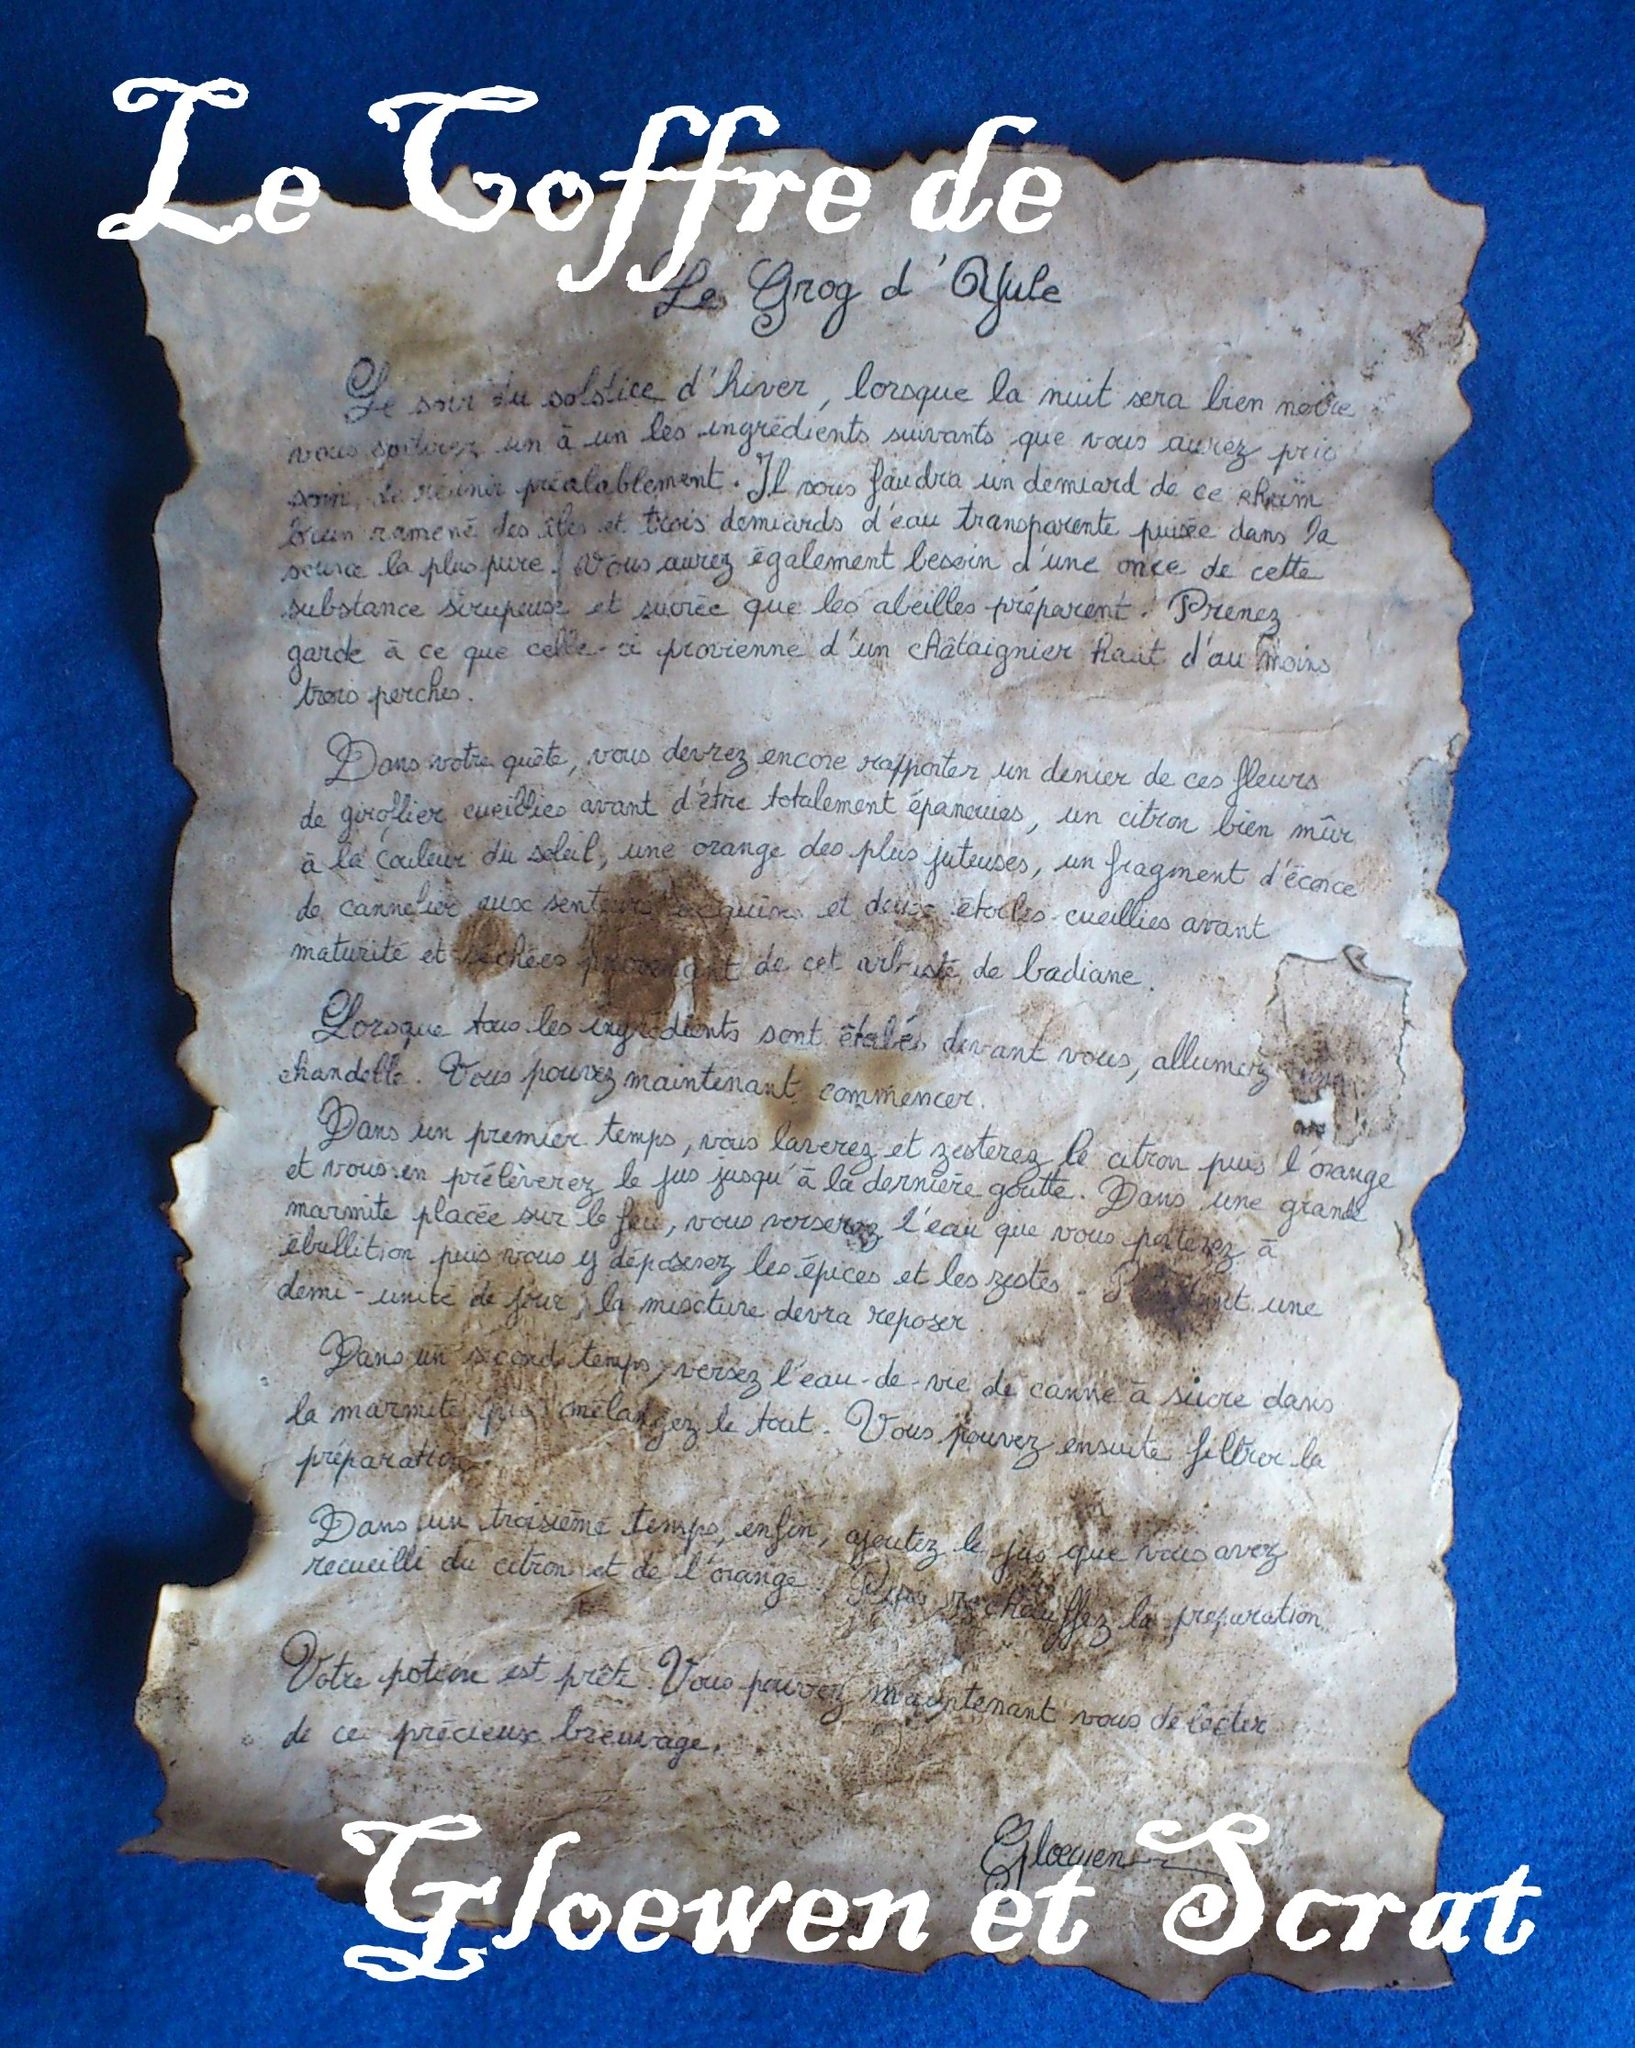 Le Coffre de
Le Grog d'Yule
Le soir du solstice d'hiver, lorsque la nuit sera bien noire
vous sortirez un à un les ingrédients suivants que vous aurez pris
soin de réunir préalablement. Il vous faudra un demiard de ce rhum
brun ramené des îles et trois demiards d'eau transparente puisée dans la
source la plus pure. Vous aurez également besoin d'une once de cette
substance sirupeuse et sucrée que les abeilles préparent. Prenez
garde à ce que celle-ci provienne d'un châtaignier haut d'au moins
trois perches.
Dans votre quête, vous devrez encore rapporter un denier de ces fleurs
de giroflier cueillies avant d'être totalement épanouies, un citron bien mûr
à la couleur du soleil, une orange des plus juteuses, un fragment d'écorce
de cannelier aux senteurs exquises et deux étoiles cueillies avant
maturité et séchées provenant de cet arbuste de badiane.
Lorsque tous les ingrédients sont étalés devant vous, allumez une
chandelle. Vous pouvez maintenant commencer.
Dans un premier temps, vous laverez et zesterez le citron puis l'orange
et vous en prélèverez le jus jusqu'à la dernière goutte. Dans une grande
marmite placée sur le feu, vous verserez l'eau que vous porterez à
ébullition puis vous y déposerez les épices et les zestes. Pendant une
demi-unité de jour, la mixture devra reposer
Dans un second temps, versez l'eau-de-vie de canne à sucre dans
la marmite puis mélangez le tout. Vous pouvez ensuite filtrer la
préparation.
Dans un troisième temps, enfin, ajoutez le jus que vous avez
recueilli du citron et de l'orange. Puis réchauffez la préparation.
Votre potion est prête. Vous pouvez maintenant vous délecter
de ce précieux breuvage.
Gloewen
Gloewen et Scrat